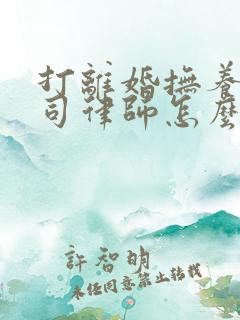 打離婚撫養
司律師怎麼
許智明
未经同意禁止转载